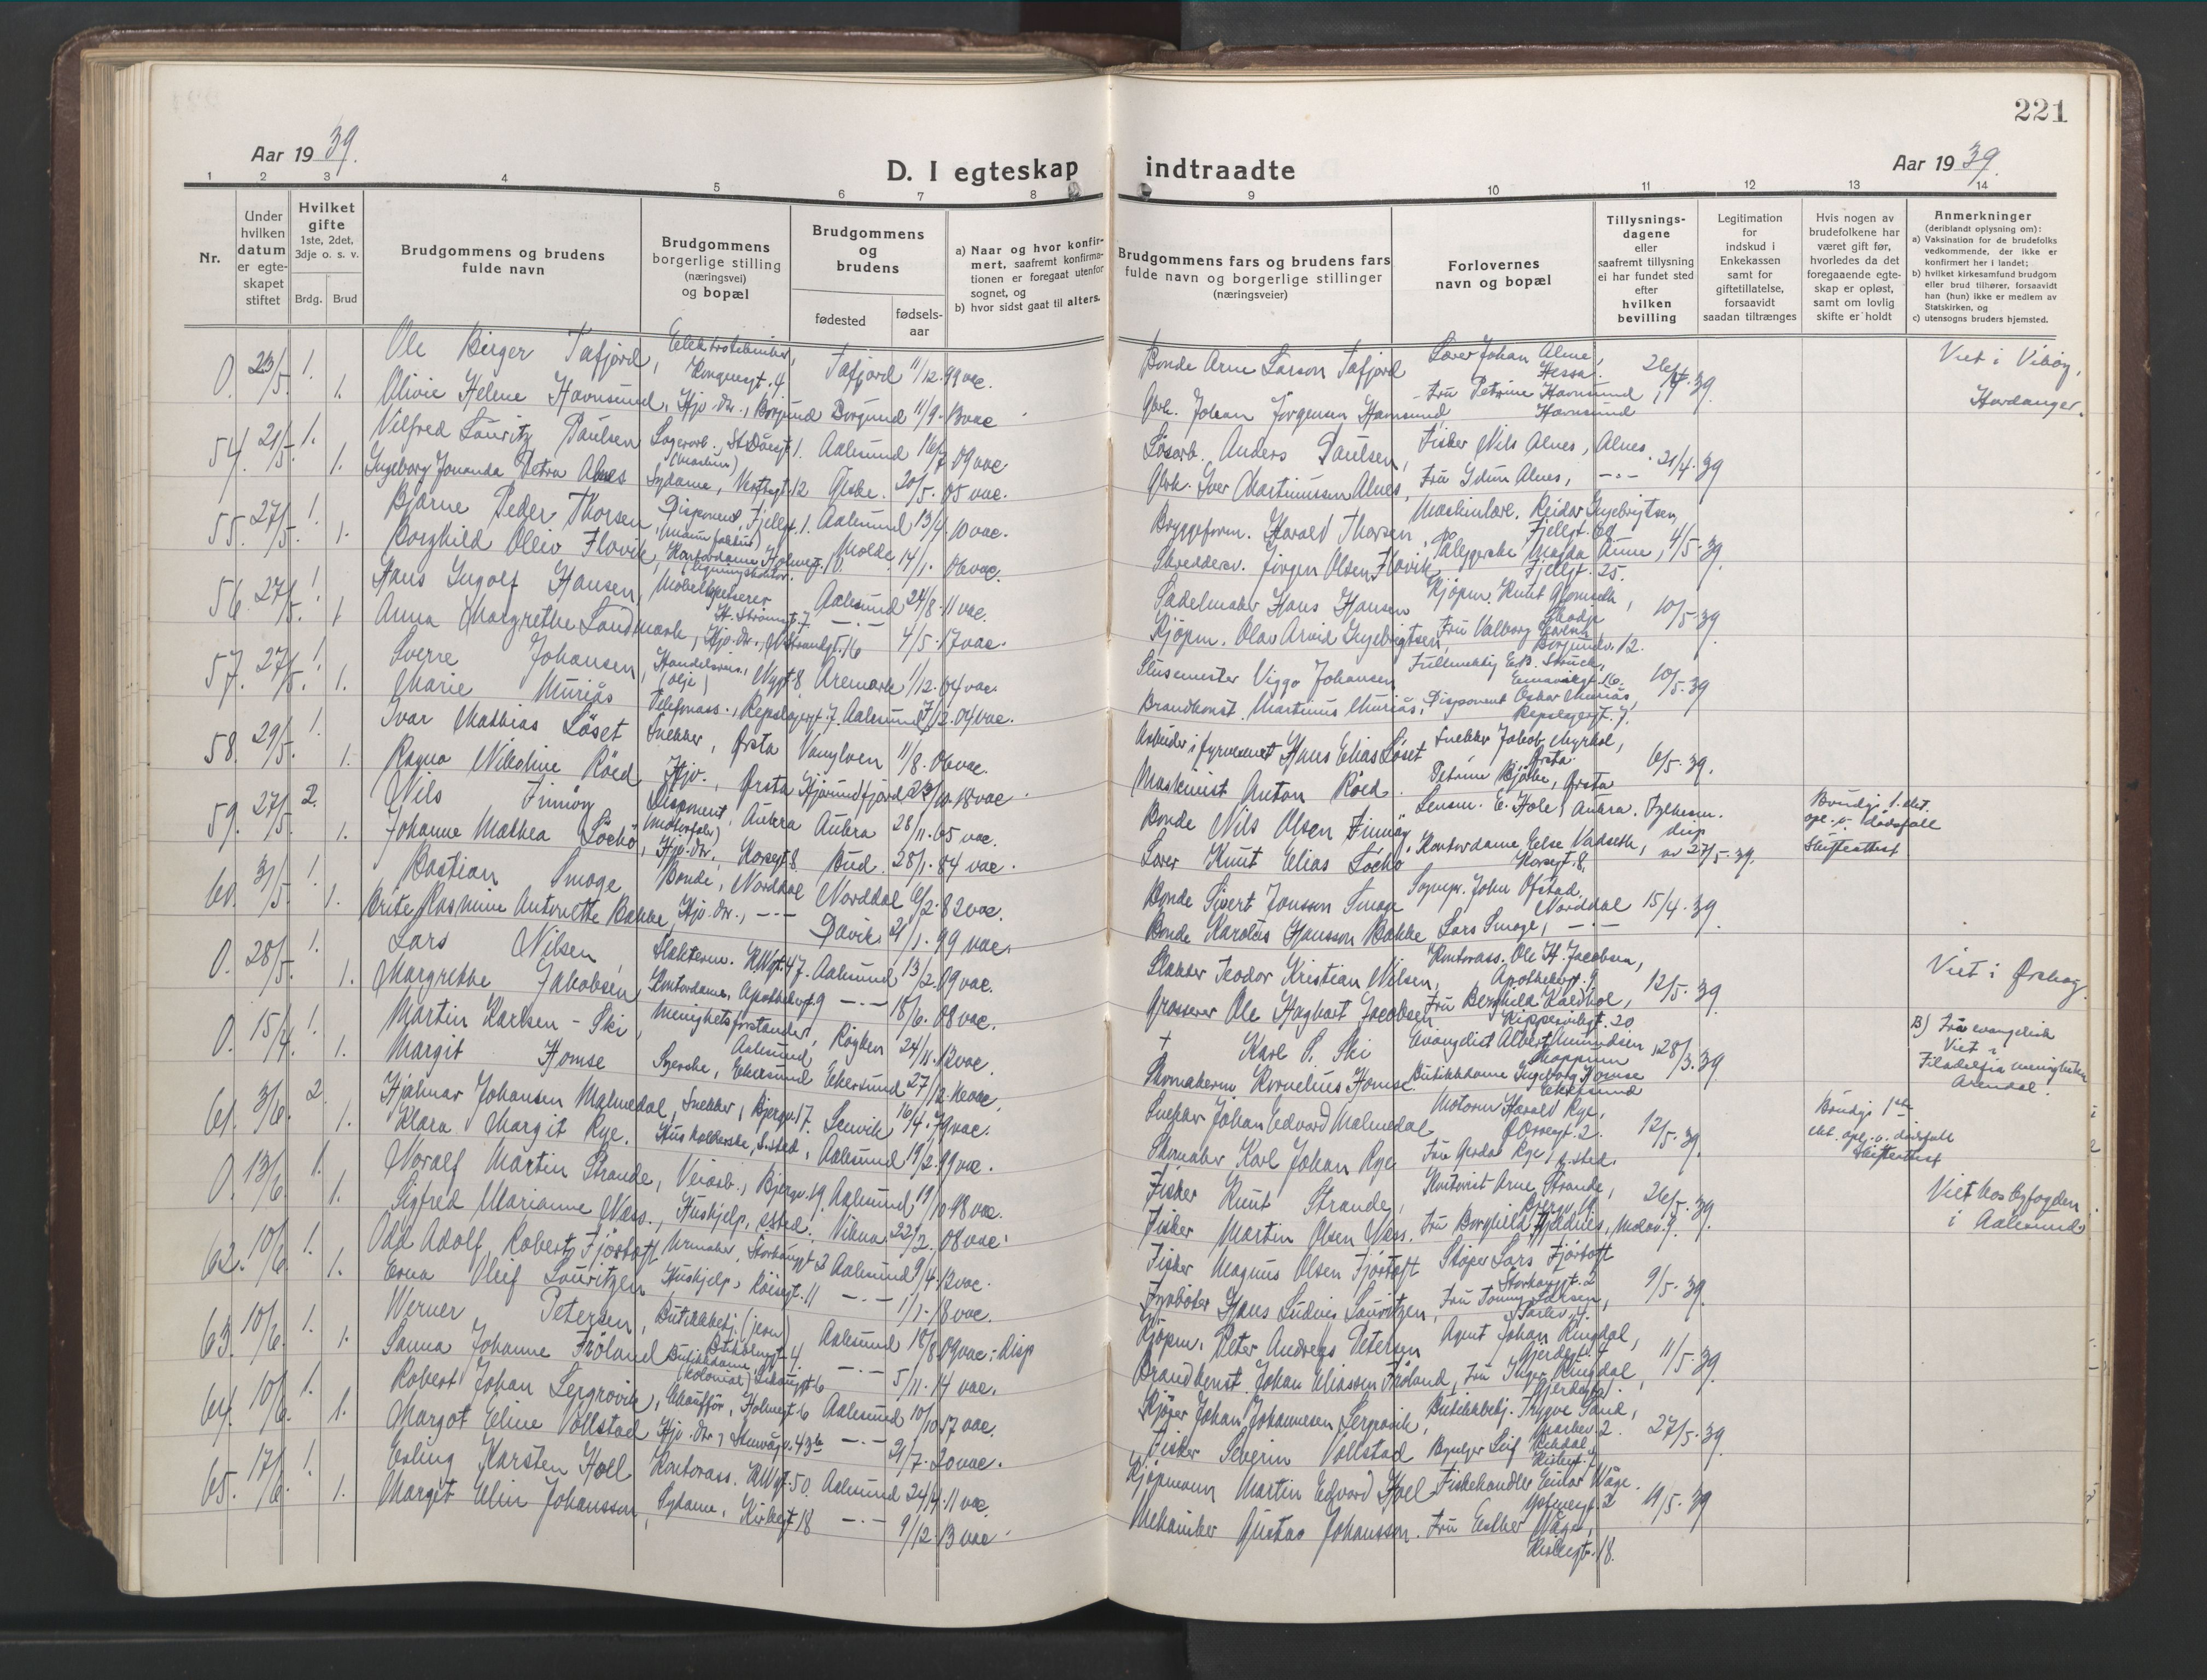 221
Aar 1939.
D. I egteskap indtraadte
Aar 1939.
1 2 3 4 5 6 7 8 9 10 11 12 13 14
Nr.
Under hvilken datum er egteskapet stiftet
Hvilket gifte 1ste, 2det, 3dje o. s. v.
Brdg. Brud
Brudgommens og brudens fulde navn
Brudgommens borgerlige stilling (næringsvei) og bopæl
Brudgommens og brudens
fødested
fødsels-aar
a) Naar og hvor konfirmert, saafremt konfirmationen er foregaat utenfor sognet, og
b) hvor sidst gaat til alters.
Brudgommens fars og brudens fars fulde navn og borgerlige stillinger (næringsveier)
Forlovernes navn og bopæl
Tillysningsdagene eller saafremt tillysning ei har fundet sted efter hvilken bevilling
Legitimation for indskud i Enkekassen samt for giftetillatelse, forsaavidt saadan tiltrænges
Hvis nogen av brudefolkene har været gift før, hvorledes da det foregaaende egteskap er opløst, samt om lovlig skifte er holdt
Anmerkninger (deriblandt oplysning om):
a) Vaksination for de brudefolks vedkommende, der ikke er konfirmert her i landet;
b) hvilket kirkesamfund brudgom eller brud tilhører, forsaavidt han (hun) ikke er medlem av Statskirken, og
c) utensogns bruders hjemsted.
0. 23/5. 1. Ole Birger Tafjord, Tafjord 11/12.99 vac. Bonde Arne Larson Tafjord Lærer Johan Alme, Hessa. 26/4.39. Viet i
1. Olivie Helene Havnsund, Hjv. dtr., Borgund Borgund 11/9.13 vac. Gbrk. Johan Jørgensen Havnsund Fru Petrine Havnsund, Havnsund Hardanger.
54. 21/5. 1. Vilfred Lauritz Paulsen Lagerarb. 1. Aalesund 16/7 09 vac Løsarb. Anders Paulsen, Fisker Nils Alnes, Alnes. 21/4.39
1. Ingeborg Jovanda Petra Alnes Sydame, 12 Giske. 20/5. 05 vac. Gbrk. Iver Martinussen Alnes, Fru Idun Alnes, —"—
55. 27/5. 1. Bjarne Peder Thorsen Disponent, Fjellgt. 1. Aalesund 13/4. 10 vac. Bryggeform. Harald Thorsen, Reidar Ingebrigtsen, Fjellgt. 4/5.39.
1. Borghild Oline Flovik, Kontordame Holmegt. 10. Molde 14/1. 06 vac. Skreddersv. Jørgen Olsen Flovik, Magda Aune, Fjellgt. 25.
56. 27/5. 1. Hans Ingolf Hansen, Møbeltapetserer St. Strømgt. 7 Aalesund 24/8. 11 vac. Sadelmaker Hans Hansen Kjøpm. Knut 10/5.39
1. Anna Margrethe Landmark, Hjv. dtr., 16 —"— 4/5.17 vac. Kjøpm. Olav Arvid Ingebrigtsen, Fru Valborg Borgundv. 12.
57. 27/5. 1. Sverre Johansen, Handelsreis., (olje) Nygt. 8 Aremark 1/12.04 vac. Slusemester Viggo Johansen 16. 10/5.39
1. Marie Muriås Telefonass., Repslagergt. 7. Aalesund 04 vac. Brandkonst. Martinus Muriås, Disponent Oskar Muriås, Repslagergt. 7.
58. 29/5. 1. Ivar Mathias Løset Snekker, Ørsta Vanylven 11/8. 06 vac. Arbeider i fyrvesenet Hans Elias Løset Snekker Jakob Myrhol, Ørsta 6/5.39.
1. Ragna Nikoline Røed Hjv., Ørsta Hjørundfjord 18 vac. Maskinist Anton Røed. Petrine Bjåbe, Ørsta
59. 27/5. 2. Nils Finnøy Disponent, (motorfabr.) Aukra Aukra 28/11.65 vac. Bonde Nils Olsen Finnøy Lensm. E. Hole, Aukra. Fylkesm. disp. av 27/5.39. Brudg. 1. ekt. opl. v. dødsfall Skifteattest
1. Johanne Mathea Løchø, Hjv. dtr., Korsegt. 8. Bud. 28/1.84 vac. Lærer Knut Elias Løchø Kontordame Else Vadseth, Korsegt. 8.
60. 31/5. 1. Bastian Smoge Bonde, Norddal Norddal 6/2.82 vac. Bonde Sivert Jonsson Smoge Sognepr. John Ofstad, Norddal 15/4.39
1. Brite Rasmine Antonette Bakke, Hjv. dtr., —"— Davik. 21/1.99 vac. Bonde Karolus Hansson Bakke Lars Smoge, —"—
0. 28/5. 1. Lars Nilsen, 47. Aalesund 13/2.09 vac. Slakter Teodor Kristian Nilsen, Kontorass. Ole H. Jacobsen, Apothekergt. 9 12/5.39. Viet i Ørskog.
1. Margrethe Jakobsen Kontordame, Apothekergt. 9 —"— 18/6. 08 vac. Grosserer Ole Hagbart Jacobsen. Fru Borghild Kaldhol, 20
0. 15/4. 1. Martin Karlsen-Ski, Menighetsforstander, Aalesund Røyken 24/11.12 vac. † Karl S. Ski Evangelist Albert Amundsen, 28/3.39 B) Fri evangelisk Viet i Filadelfia menigheten Arendal.
1. Margit Homse Syerske, Ekersund Ekersund 27/12. vac. Skomakerm Kornelius Homse Butikkdame Ingeborg Homse Ekersund
61. 3/6. 2. Hjalmar Johansen Malmedal, Snekker, Bjergv. 17. 16/4.79 vac. Snekker Johan Edvard Malmedal Motorm Harald Rye, 2. 12/5.39. Brudg. 1ste ekt. opl. v. dødsfall Skifteattest
1. Klara Margit Rye. Husholderske, s.sted, Aalesund 19/2.99 vac. Skomaker Karl Johan Rye Fru Gerda Rye, s. sted.
0. 13/6. 1. Noralf Martin Strande, Veiarb., Bjergv. 19. Aalesund 19/10 18 vac. Fisker Knut Strande, Kontorist Arne Strande, Bjergv. 19. 26/5.39. Viet hos byfogden i Aalesund.
1. Sigfred Marianne Næss., Hushjelp, s.sted. Vikna 22/2.08 vac. Fisker Martin Olsen Næss. Fru Borghild
62. 10/6. 1. Odd Adolf Roberts Fjørtoft Urmaker, Storhaugt. 2 Aalesund 9/4.12 vac. Fisker Magnus Olsen Fjørtoft Støper Lars Fjørtoft Storhaugt. 2 9/5.39.
1. Erna Oleif Lauritzen Hushjelp, Røisegt. 11 —"— 1/1.18 vac. Hans Ludvig Lauritzen, Fru Tonny Larsen,
63. 10/6. 1. Werner Petersen, Butikkbetj. (jern) 4. Aalesund 18/8.09 vac: Disp Kjøpm. Peter Andreas Petersen Agent Johan Ringdal, 11/5.39.
1. Sanna Johanne Frøland Butikkdame, (kolonial) 6 —"— 5/11.14 vac. Brandkonst. Johan Eliassen Frøland, Fru Inger Ringdal,
64. 10/6. 1. Robert Johan Lergrovik, Chauffør, Holmegt. 6 Aalesund 10/10 17 vac. Kjører Johan Johannesen Lergrovik, Butikkbetj. Trygve Sand, 2. 27/5.39.
1. Margot Eline Vollstad Hjv. dtr, Stenvågv. 43b —"— 21/7.20 vac. Fisker Severin Vollstad Leif Rekdal,
65. 17/6. 1. Erling Karsten Hoel Kontorass. 50. Aalesund 24/4.11 vac. Kjøpmann Martin Edvard Hoel Fiskehandler Einar Våge. 2 19/5.39
1. Margit Elin Johansson, Sydame, Kirkegt. 18 —"— 9/12.13 vac Mekaniker Gustav Johansson. Fru Esther Våge, Kirkegt. 18.